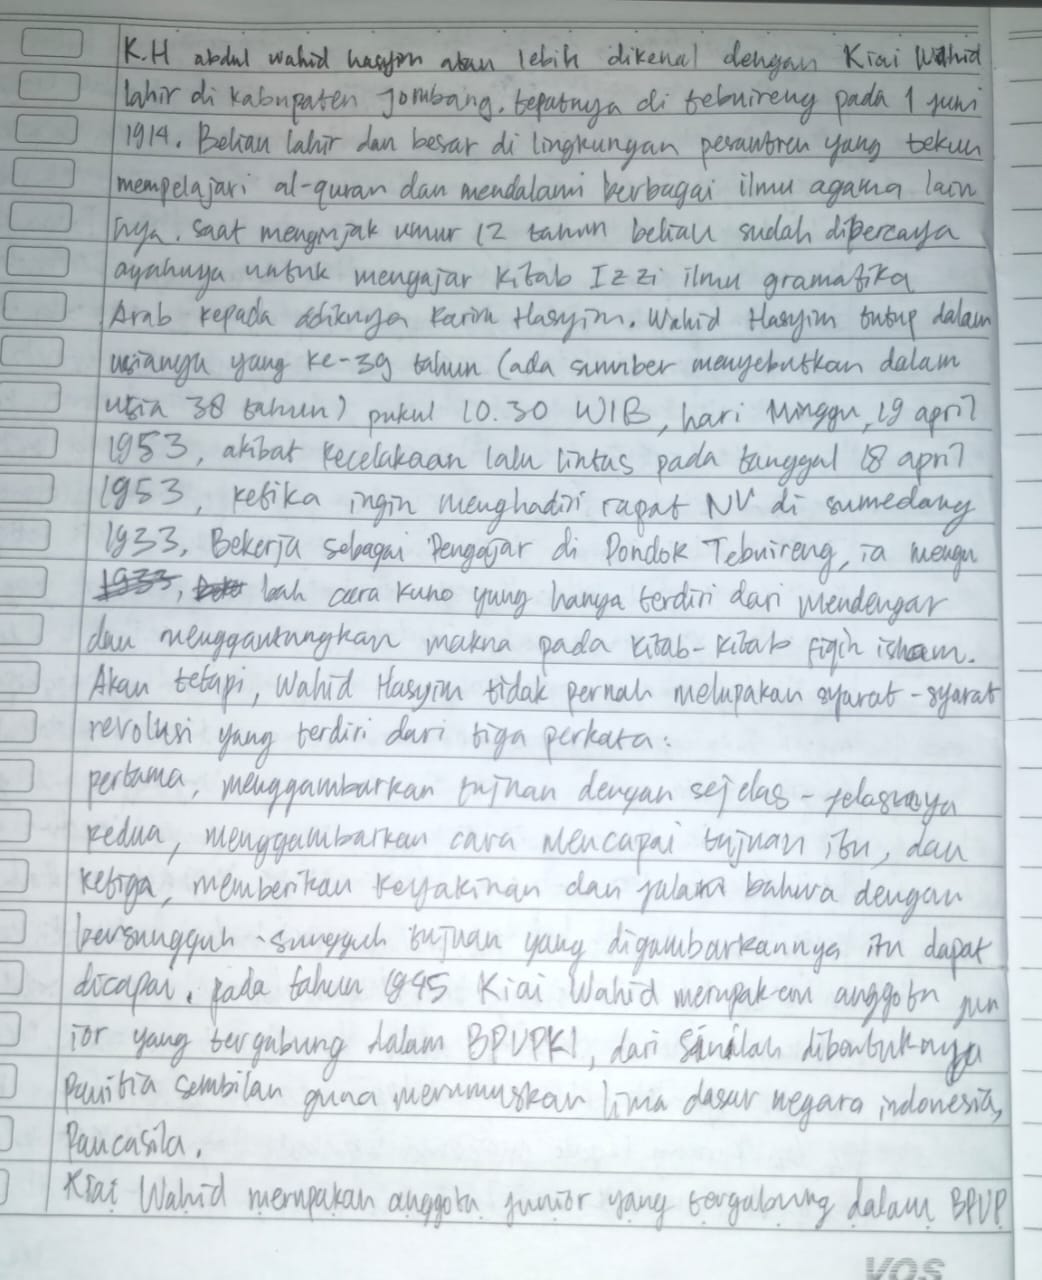 K.H abdul wahid hasyim atau lebih dikenal dengan Kiai Wahid
lahir di kabupaten Jombang, tepatnya di tebuireng pada 1 juni
1914. Beliau lahir dan besar di lingkungan pesantren yang tekun
mempelajari al-quran dan mendalami berbagai ilmu agama lain
nya. saat menginjak umur 12 tahun beliau sudah dipercaya
ayahnya untuk mengajar kitab Izzi ilmu gramatika
Arab kepada adiknya Karim Hasyim. Wahid Hasyim tutup dalam
usianya yang ke-39 tahun (ada sumber menyebutkan dalam
usia 38 tahun) pukul 10.30 WIB, hari Minggu, 19 april
1953, akibat kecelakaan lalu lintas pada tanggal 18 april
1953, ketika ingin menghadiri rapat NU di sumedang
1933, Bekerja sebagai Pengajar di Pondok Tebuireng, ia mengu
bah cara kuno yang hanya terdiri dari mendengar
dan menggantungkan makna pada kitab-kitab fiqih islam.
Akan tetapi, Wahid Hasyim tidak pernah melupakan syarat-syarat
revolusi yang terdiri dari tiga perkara:
pertama, menggambarkan tujuan dengan sejelas-jelasnya
kedua, menggambarkan cara mencapai tujuan itu, dan
ketiga, memberikan keyakinan dan jalan bahwa dengan
bersungguh-sungguh tujuan yang digambarkannya itu dapat
dicapai. pada tahun 1945 Kiai Wahid merupakan anggota jun
ior yang tergabung dalam BPUPKI, dari sinilah dibentuknya
Panitia sembilan guna merumuskan lima dasar negara indonesia,
Pancasila.
Kiai Wahid merupakan anggota junior yang tergabung dalam BPUP
VOS